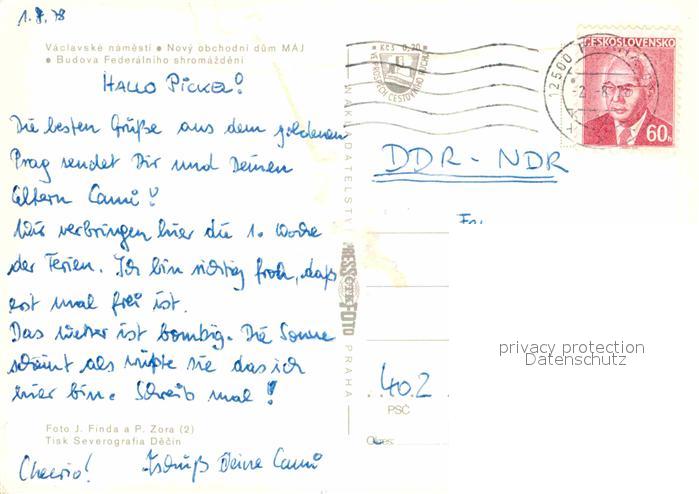 1.8.78
Václavské náměstí • Nový obchodní dům MÁJ
• Budova Federálního shromáždění
HALLO PICKEL!
Die besten Grüße aus dem goldenen
Prag sendet Dir und Deinen
Eltern Camü!
Wir verbringen hier die 1. Woche
der Ferien. Ich bin richtig froh, daß
erst mal frei ist.
Das Wetter ist bombig. Die Sonne
scheint als wüßte sie das ich
hier bin. Schreib mal!
Foto J. Finda a P. Zora (2)
Tisk Severografia Děčín
Cheerio! Tschüß Deine Camü
Kčs 0,20
VE PROSPĚCH CESTOVNÍHO RUCHU
VYDAVATELSTVÍ
PRESSFOTO
PRAHA
12500
ČESKOSLOVENSKO
60h
DDR - NDR
402
PSČ
Okres:
privacy protection
Datenschutz